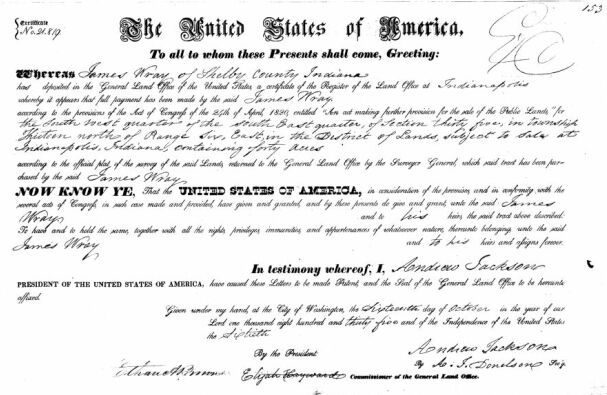 153
Certificate
No. 21.819
The United States of America,
To all to whom these Presents shall come, Greeting:
Whereas James Wray, of Shelby County Indiana
has deposited in the General Land Office of the United States, a certificate of the Register of the Land Office at Indianapolis
whereby it appears that full payment has been made by the said James Wray
according to the provisions of the Act of Congress of the 24th of April, 1820, entitled "An act making further provision for the sale of the Public Lands," for
the South West quarter of the South East quarter, of Section thirty five, in township
thirteen north, of Range Six, East, in the District of Lands subject to sale at
Indianapolis, Indiana, containing forty acres
according to the official plat of the survey of the said Lands, returned to the General Land Office by the Surveyor General, which said tract has been pur-
chased by the said James Wray
NOW KNOW YE, That the UNITED STATES OF AMERICA, in consideration of the premises, and in conformity with the
several acts of Congress, in such case made and provided, have given and granted, and by these presents do give and grant, unto the said James
Wray and to his heirs, the said tract above described:
To have and to hold the same, together with all the rights, privileges, immunities, and appurtenances of whatsoever nature, thereunto belonging, unto the said
James Wray and to his heirs and assigns forever.
In testimony whereof, I, Andrew Jackson
PRESIDENT OF THE UNITED STATES OF AMERICA, have caused these Letters to be made Patent, and the Seal of the General Land Office to be hereunto
affixed.
Given under my hand, at the City of Washington, the Sixteenth day of October in the year of our
Lord one thousand eight hundred and thirty five and of the Independence of the United States
the Sixtieth
By the President: Andrew Jackson
By A. J. Donelson Sec'y.
Elijah Hayward Commissioner of the General Land Office.